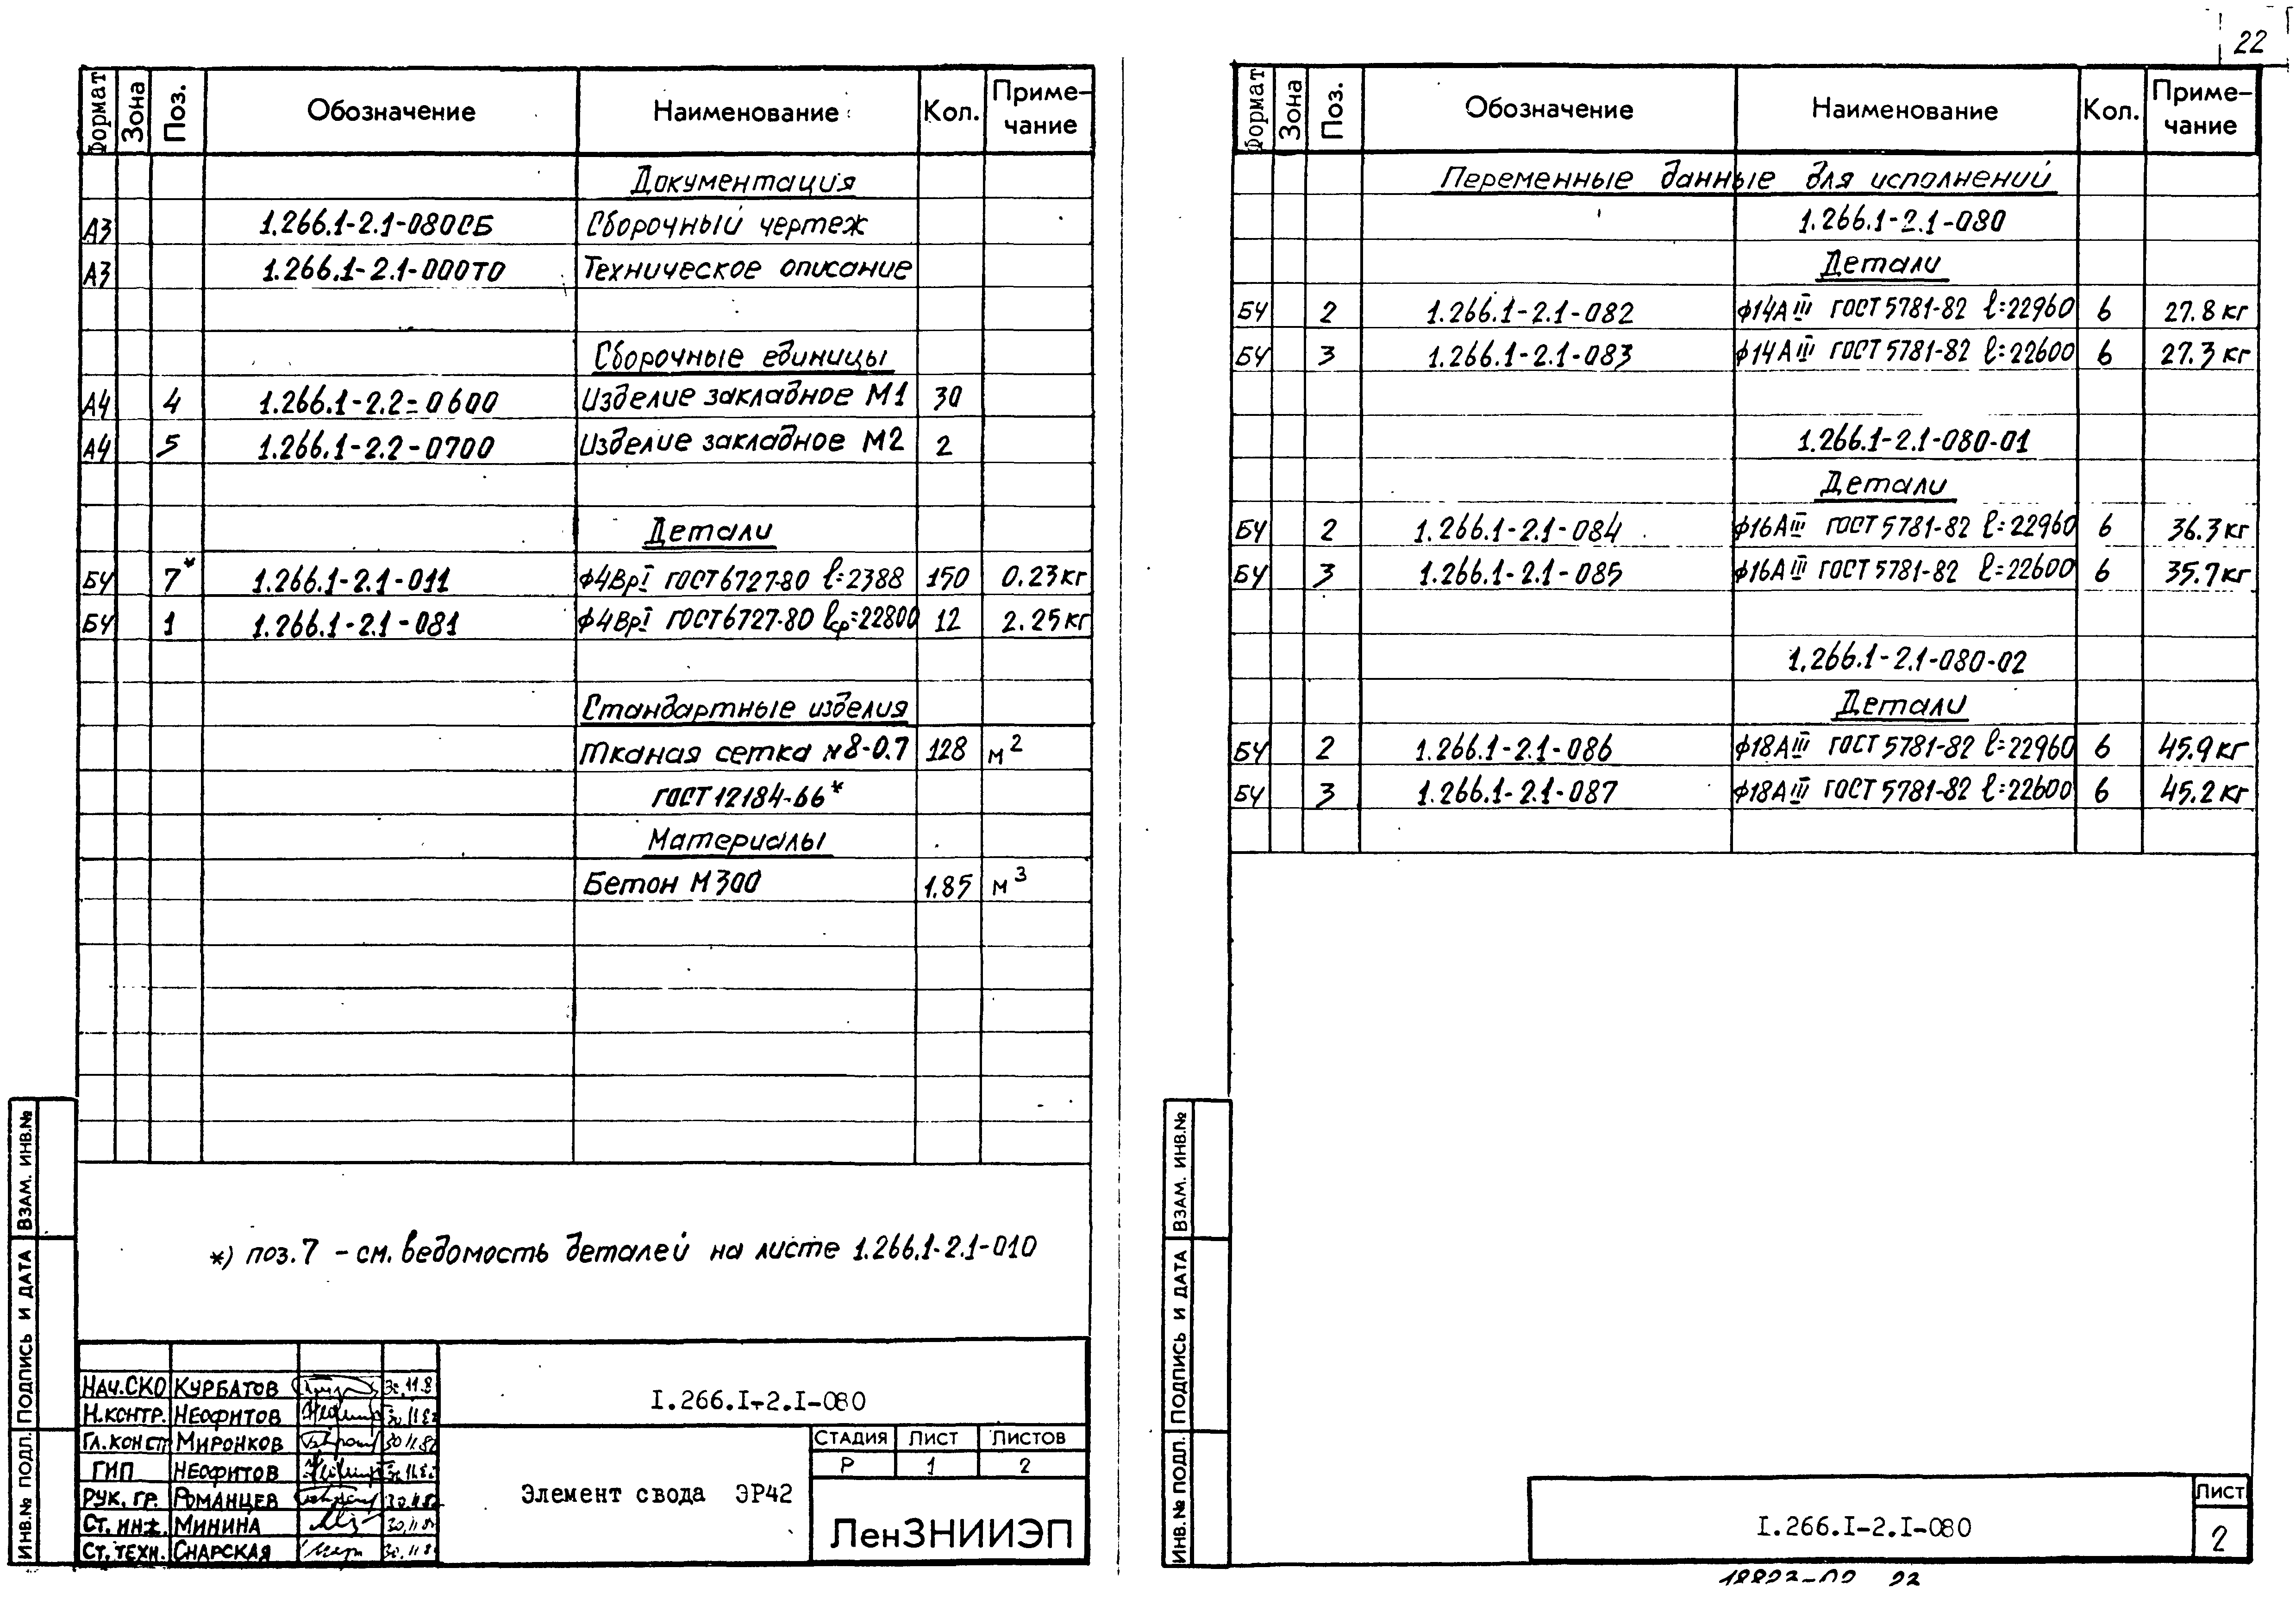 22
Формат Зона Поз. Обозначение Наименование Кол. Приме-чание
Документация
А3 1.266.1-2.1-080СБ Сборочный чертеж
А3 1.266.1-2.1-000ТО Техническое описание
Сборочные единицы
А4 4 1.266.1-2.2-0600 Изделие закладное М1 30
А4 5 1.266.1-2.2-0700 Изделие закладное М2 2
Детали
БЧ 7* 1.266.1-2.1-011 ф4ВрI ГОСТ6727-80 l=2388 150 0.23кг
БЧ 1 1.266.1-2.1-081 ф4ВрI ГОСТ6727-80 lср=22800 12 2.25кг
Стандартные изделия
Тканая сетка №8-0.7 128 м²
ГОСТ 12184-66*
Материалы
Бетон М300 1.85 м³
*) поз.7 - см. ведомость деталей на листе 1.266.1-2.1-010
ИНВ.№ ПОДЛ. ПОДПИСЬ И ДАТА ВЗАМ. ИНВ.№
НАЧ.СКО КУРБАТОВ
Н.КОНТР. НЕОФИТОВ
ГЛ.КОНСТ МИРОНКОВ
ГИП НЕОФИТОВ
РУК. ГР. РОМАНЦЕВ
СТ. ИНЖ. МИНИНА
СТ.ТЕХН. СНАРСКАЯ
I.266.I-2.I-080
Элемент свода ЭР42
СТАДИЯ ЛИСТ ЛИСТОВ
Р 1 2
ЛенЗНИИЭП
Формат Зона Поз. Обозначение Наименование Кол. Приме-чание
Переменные данные для исполнений
1.266.1-2.1-080
Детали
БЧ 2 1.266.1-2.1-082 ф14АIII ГОСТ5781-82 l=22960 6 27.8кг
БЧ 3 1.266.1-2.1-083 ф14АIII ГОСТ5781-82 l=22600 6 27.3кг
1.266.1-2.1-080-01
Детали
БЧ 2 1.266.1-2.1-084 ф16АIII ГОСТ5781-82 l=22960 6 36.3кг
БЧ 3 1.266.1-2.1-085 ф16АIII ГОСТ5781-82 l=22600 6 35.7кг
1.266.1-2.1-080-02
Детали
БЧ 2 1.266.1-2.1-086 ф18АIII ГОСТ5781-82 l=22960 6 45.9кг
БЧ 3 1.266.1-2.1-087 ф18АIII ГОСТ5781-82 l=22600 6 45.2кг
ИНВ.№ ПОДЛ. ПОДПИСЬ И ДАТА ВЗАМ. ИНВ.№
I.266.I-2.I-080
ЛИСТ
2